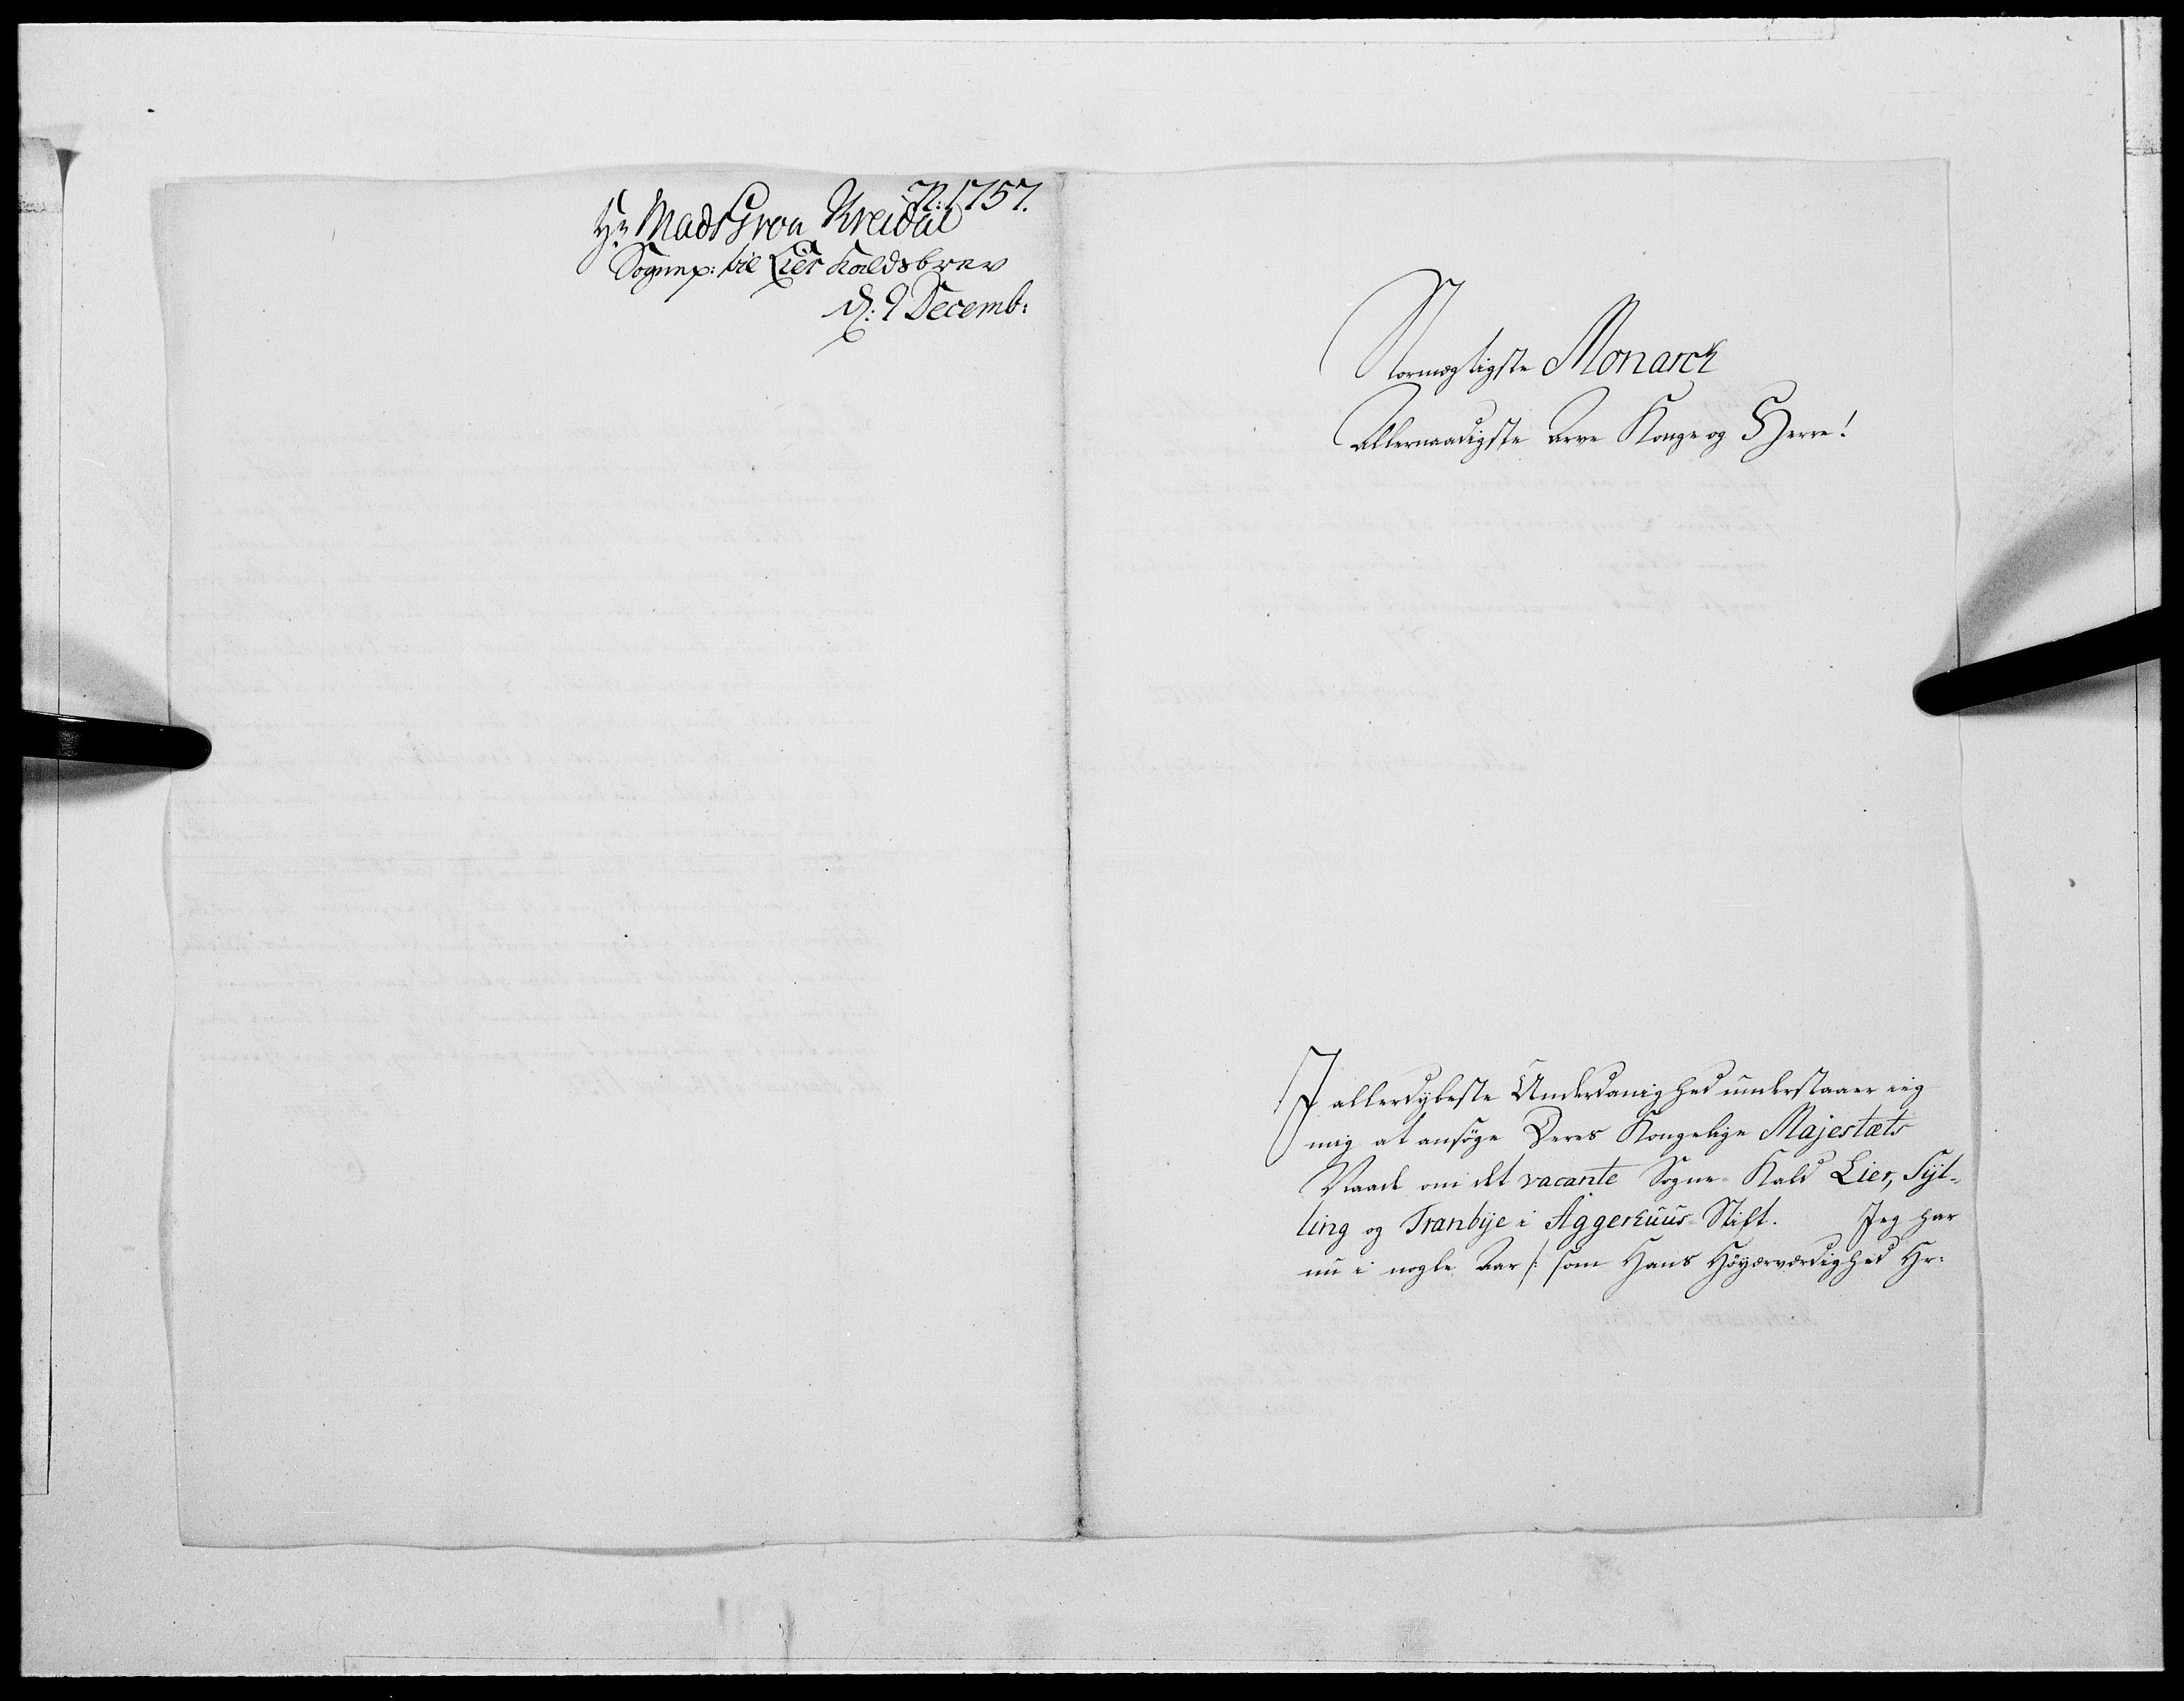 N: 1757.
Hr Mads Groa Kreidal
Sognep: til Lier Kaldsbrev
d: 9 Decemb:
Stormægtigste Monarck
Allernaadigste Arve Konge og Herre!
I allerdybeste Underdanighed understaaer ieg
mig at ansøge Deres Kongelige Majestæts
Naade om det vacante Sogne-Kald Lier, Syl-
ling og Tranbye i Aggerhuus-Stift. Jeg har
nu i nogle Aar /: som Hans Høyærværdighed Hr: